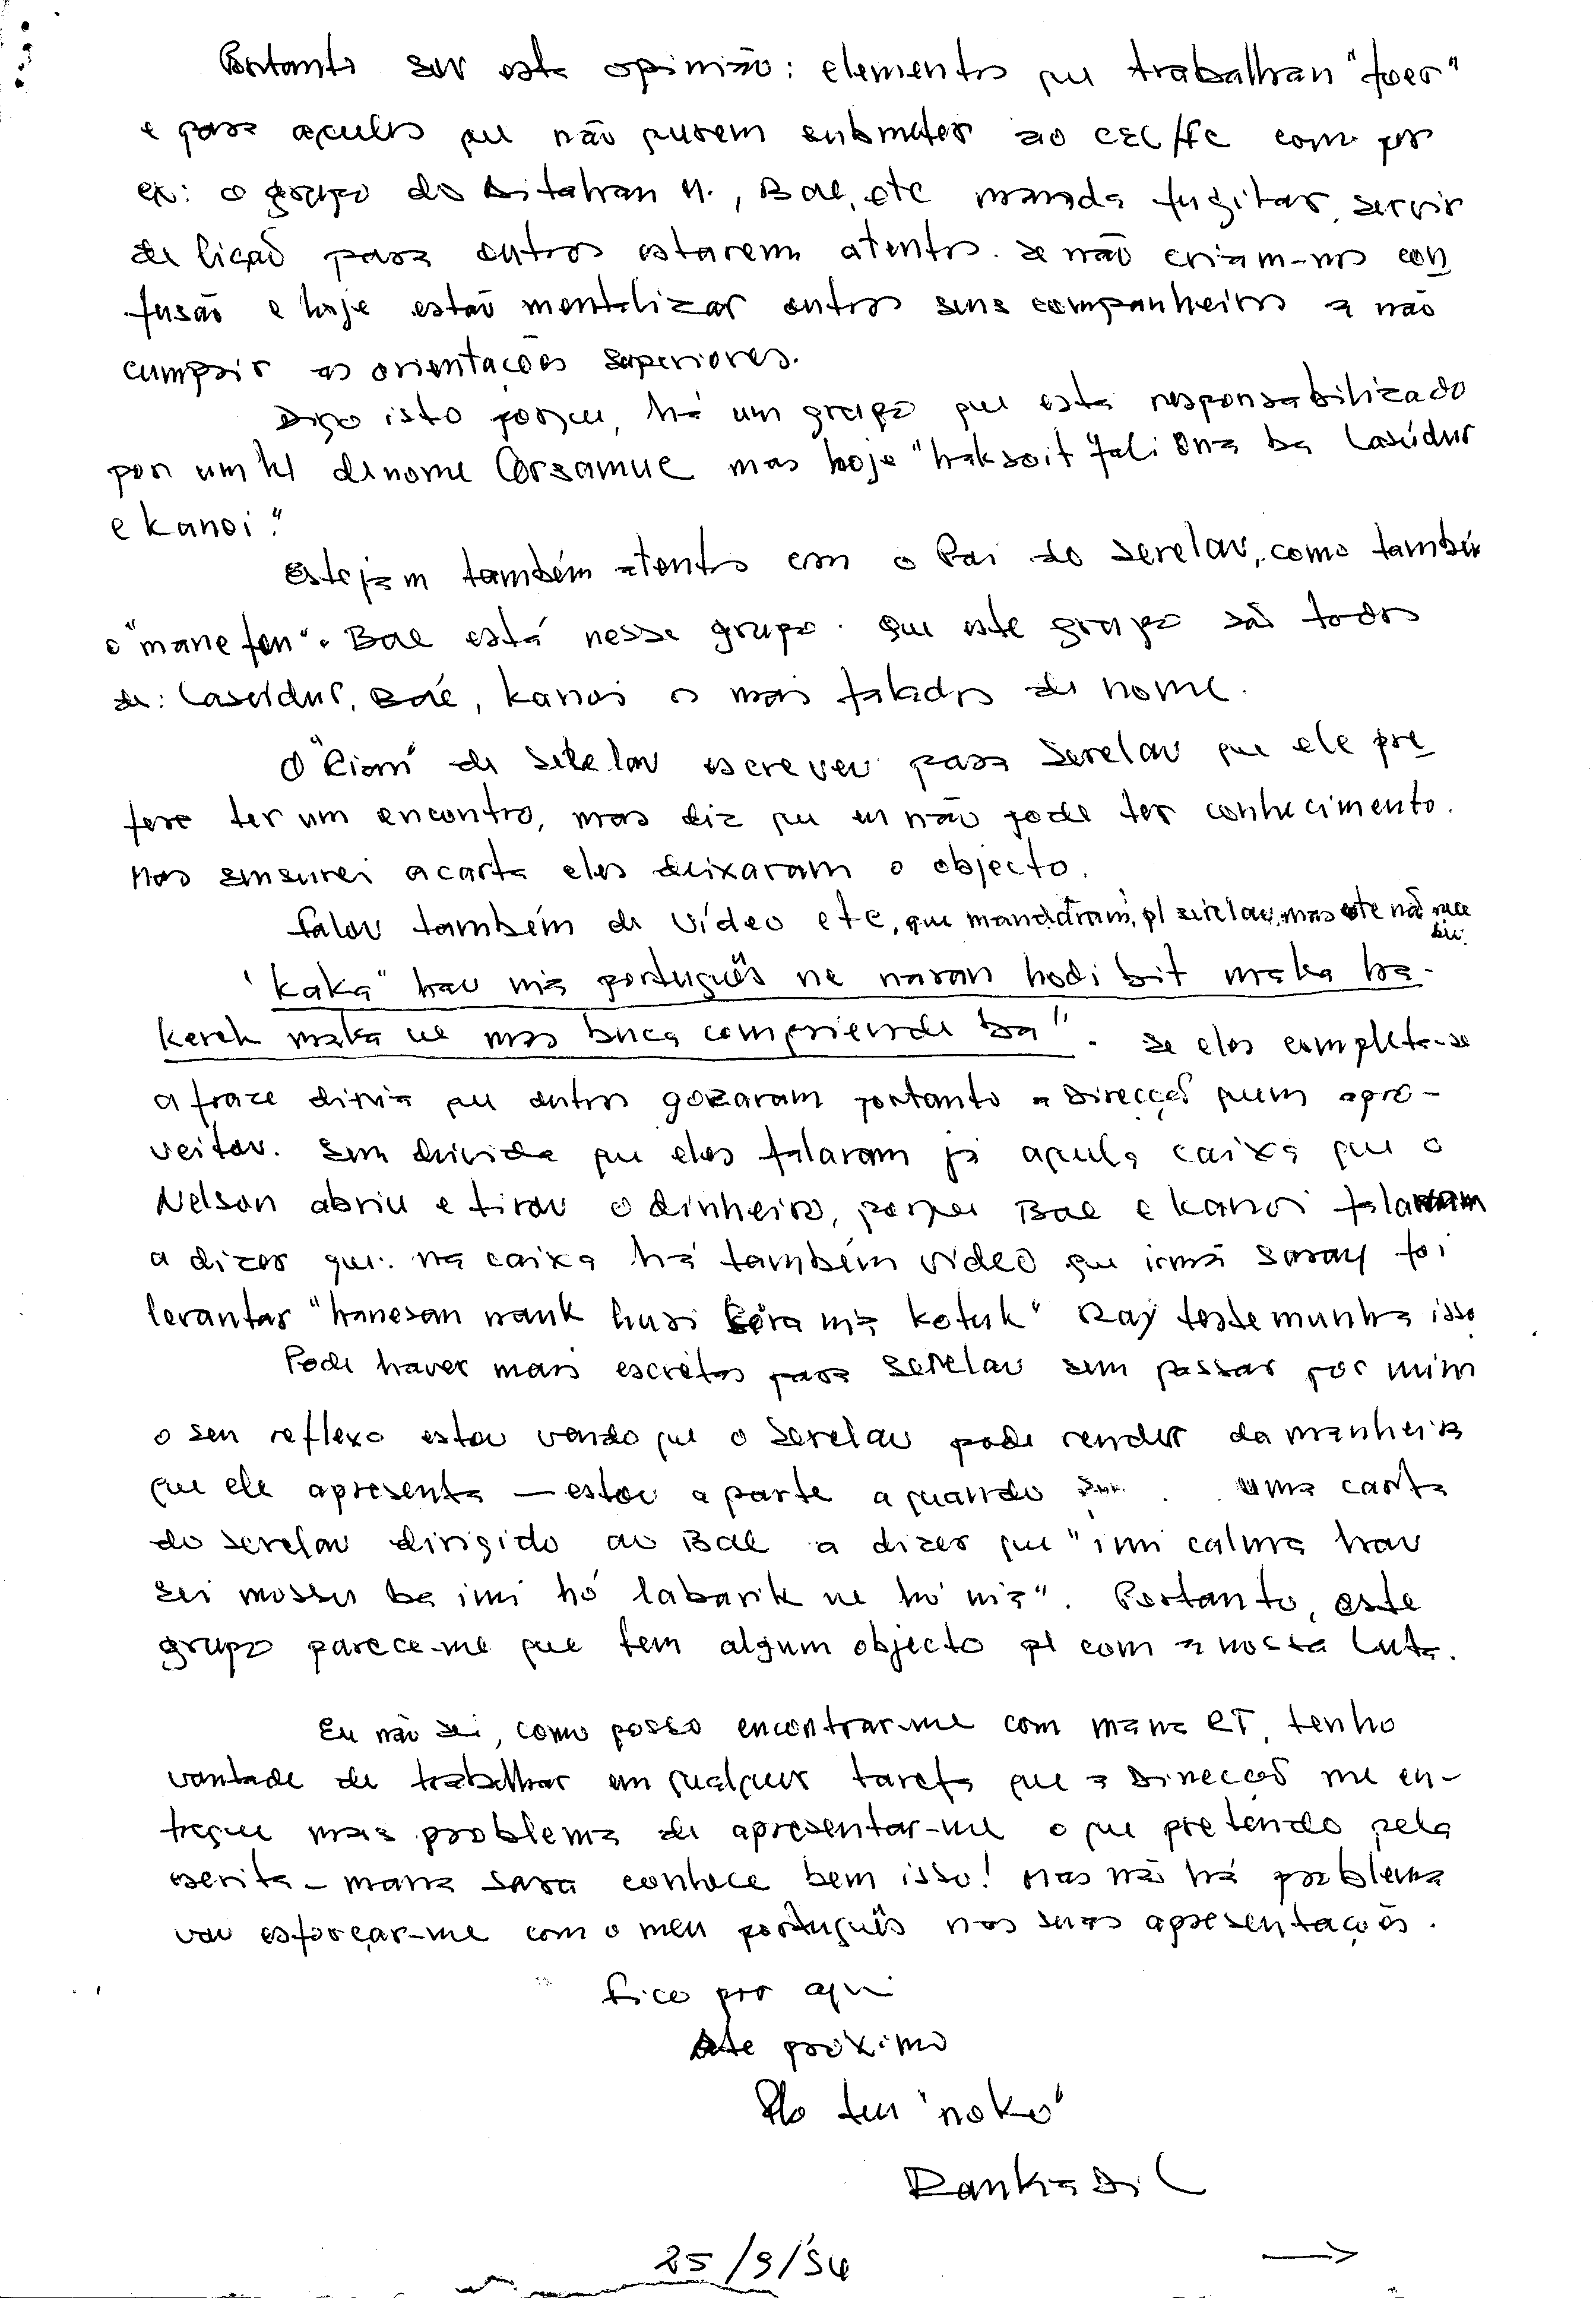 Portanto ser esta opinião: elementos que trabalhan "foer"
e para aqueles que não querem submeter ao CEL/FC como por
ex: o grupo do Ditahran M., Bae, etc manda fugitar, servir
de lição para outros estarem atentos. Se não criam-nos con
fusão e hoje estão mentalizar outros seus companheiros a não
cumprir as orientações superiores.
Digo isto porque, há um grupo que está responsabilizado
por um de nome Corsamue mas hoje "haksoit fali ona ba Lasúdur
e Kanoi".
Estejam também atentos com o Pai do Serelau, como também
o "mane fon". Bae está nesse grupo. Que este grupo são todos
de: Lasúdur, Bae, Kanoi os mais falados de nome.
O de Serelau escreveu para Serelau que ele pre
fere ter um encontro, mas diz que eu não pode ter conhecimento.
Mas sensurei a carta eles deixaram o objecto.
Falou também de vídeo etc, que mandaram p/ Serelau, mas este não rece
biu.
"Kaka" hau nia português ne naran hodi bit maka ha-
kerek maka ne mas buca compriende ba". Se eles completa-se
a fraze diria que outros gozaram portanto a Direcção quem apro-
veitou. Sem dúvida que eles falaram já aquela caixa que o
Nelson abriu e tirou o dinheiro, porque Bae e Kanoi falaram
a dizer que: na caixa há também vídeo que irmã Saray foi
levantar "hanesan nauk husi nia kotuk" Ray testemunha isso
Pode haver mais escritos para Serelau sem passar por mim
o seu reflexo estou vendo que o Serelau pode render da manheira
que ele apresenta – estou a parte aquando uma carta
do Serelau dirigido ao Bae a dizer que "imi calma hau
sei mosu ba imi hó labarik ne hó nia". Portanto, este
grupo parece-me que tem algum objecto p/ com a nossa Luta.
Eu não sei, como posso encontrar-me com mana RT, tenho
vontade de trabalhar em qualquer tarefa que a Direcção me en-
tregue mas problema de apresentar-me o que pretendo pela
escrita – mana Sara conhece bem isso! Mas não há problema
vou esforçar-me com o meu português nas suas apresentações.
Fico por aqui
Ate próximo
Do teu "noko"
25/9/94